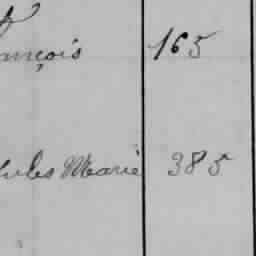 ançois 165
Jules Marie 385